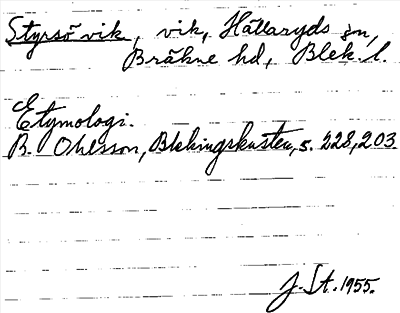 Styrsö vik, vik, Hällaryds sn,
Bräkne hd, Blek. l.
Etymologi.
B. Ohlsson, Blekingskusten, s. 228, 203.
J. St. 1955.